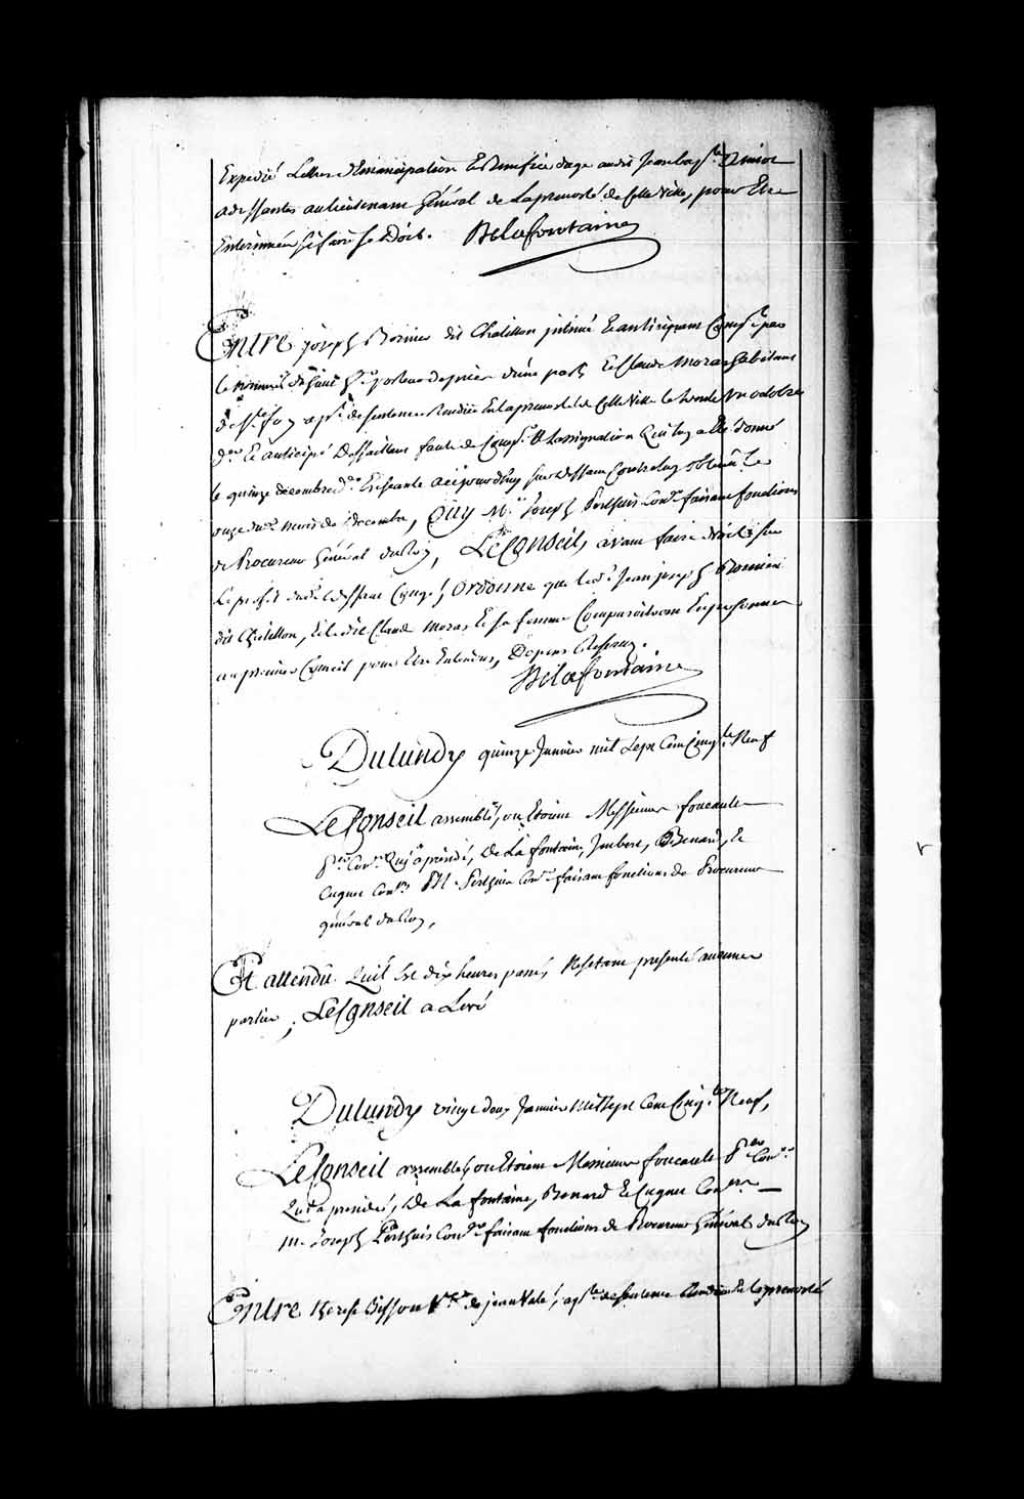 Expedié Lettres d'Emancipation Et Benefice d'age audit Jean bap.te
adressantes au lieutenant Général de La prevosté de Cette Ville, pour Etre
Enterinnées sy faire se Doit. Delafontaine
Entre joseph Bornier dit Chatillon intimé Et anticipant Comp.t par
le nommé h.er porteur de pieces d'une part, Et Claude Moras habitant
de S.te foy ap.t de sentence Rendue En la prevosté de Cette Ville le trente un octobre
d.er Et anticipé Deffaillant faute de Comp.r a Lassignation Qui luy a Eté donné
le quinze decembre d.er Echeante aujourdhuy sur deffaut Contre luy obtenu Le
onze du mois de decembre, Ouy M.e Joseph Perthuis Con.er faisant fonctions
de Procureur Général du Roy, Le Conseil, avant faire droit sur
Le profit dudit deffaut Congé, Ordonne que led.t Jean joseph Bornier
dit Chatillon, Et ledit Claude Moras, Et sa femme Comparoitront En personnes
au premier Conseil pour Etre Entendus, Depens Reservez.
Delafontaine
Du lundy quinze Janvier mil Sept Cent Cinq.te Neuf
Le Conseil assemblé, ou Etoient Messieurs foucault
p.er Con.er Qui a présidé, De La fontaine, Imbert, Benard, Et
Cugnet Con.ers M. Perthuis Con.er faisant fonctions de Procureur
général du Roy,
Et attendu Quil Est dix heures passé, Ne setant presenté aucunes
parties; Le Conseil a Levé
Du lundy vingt deux Janvier Mil Sept Cent Cinq.te Neuf,
Le Conseil assemblé, ou Etoient Messieurs foucault P.er Con.er
Qui a presidé, De La fontaine, Benard Et Cugnet Con.ers
M. Joseph Perthuis Con.er faisant fonctions de Procureur Général du Roy
Entre therese Bisson V.ve de jean Valé, ap.te de sentence Rendue En la prevosté